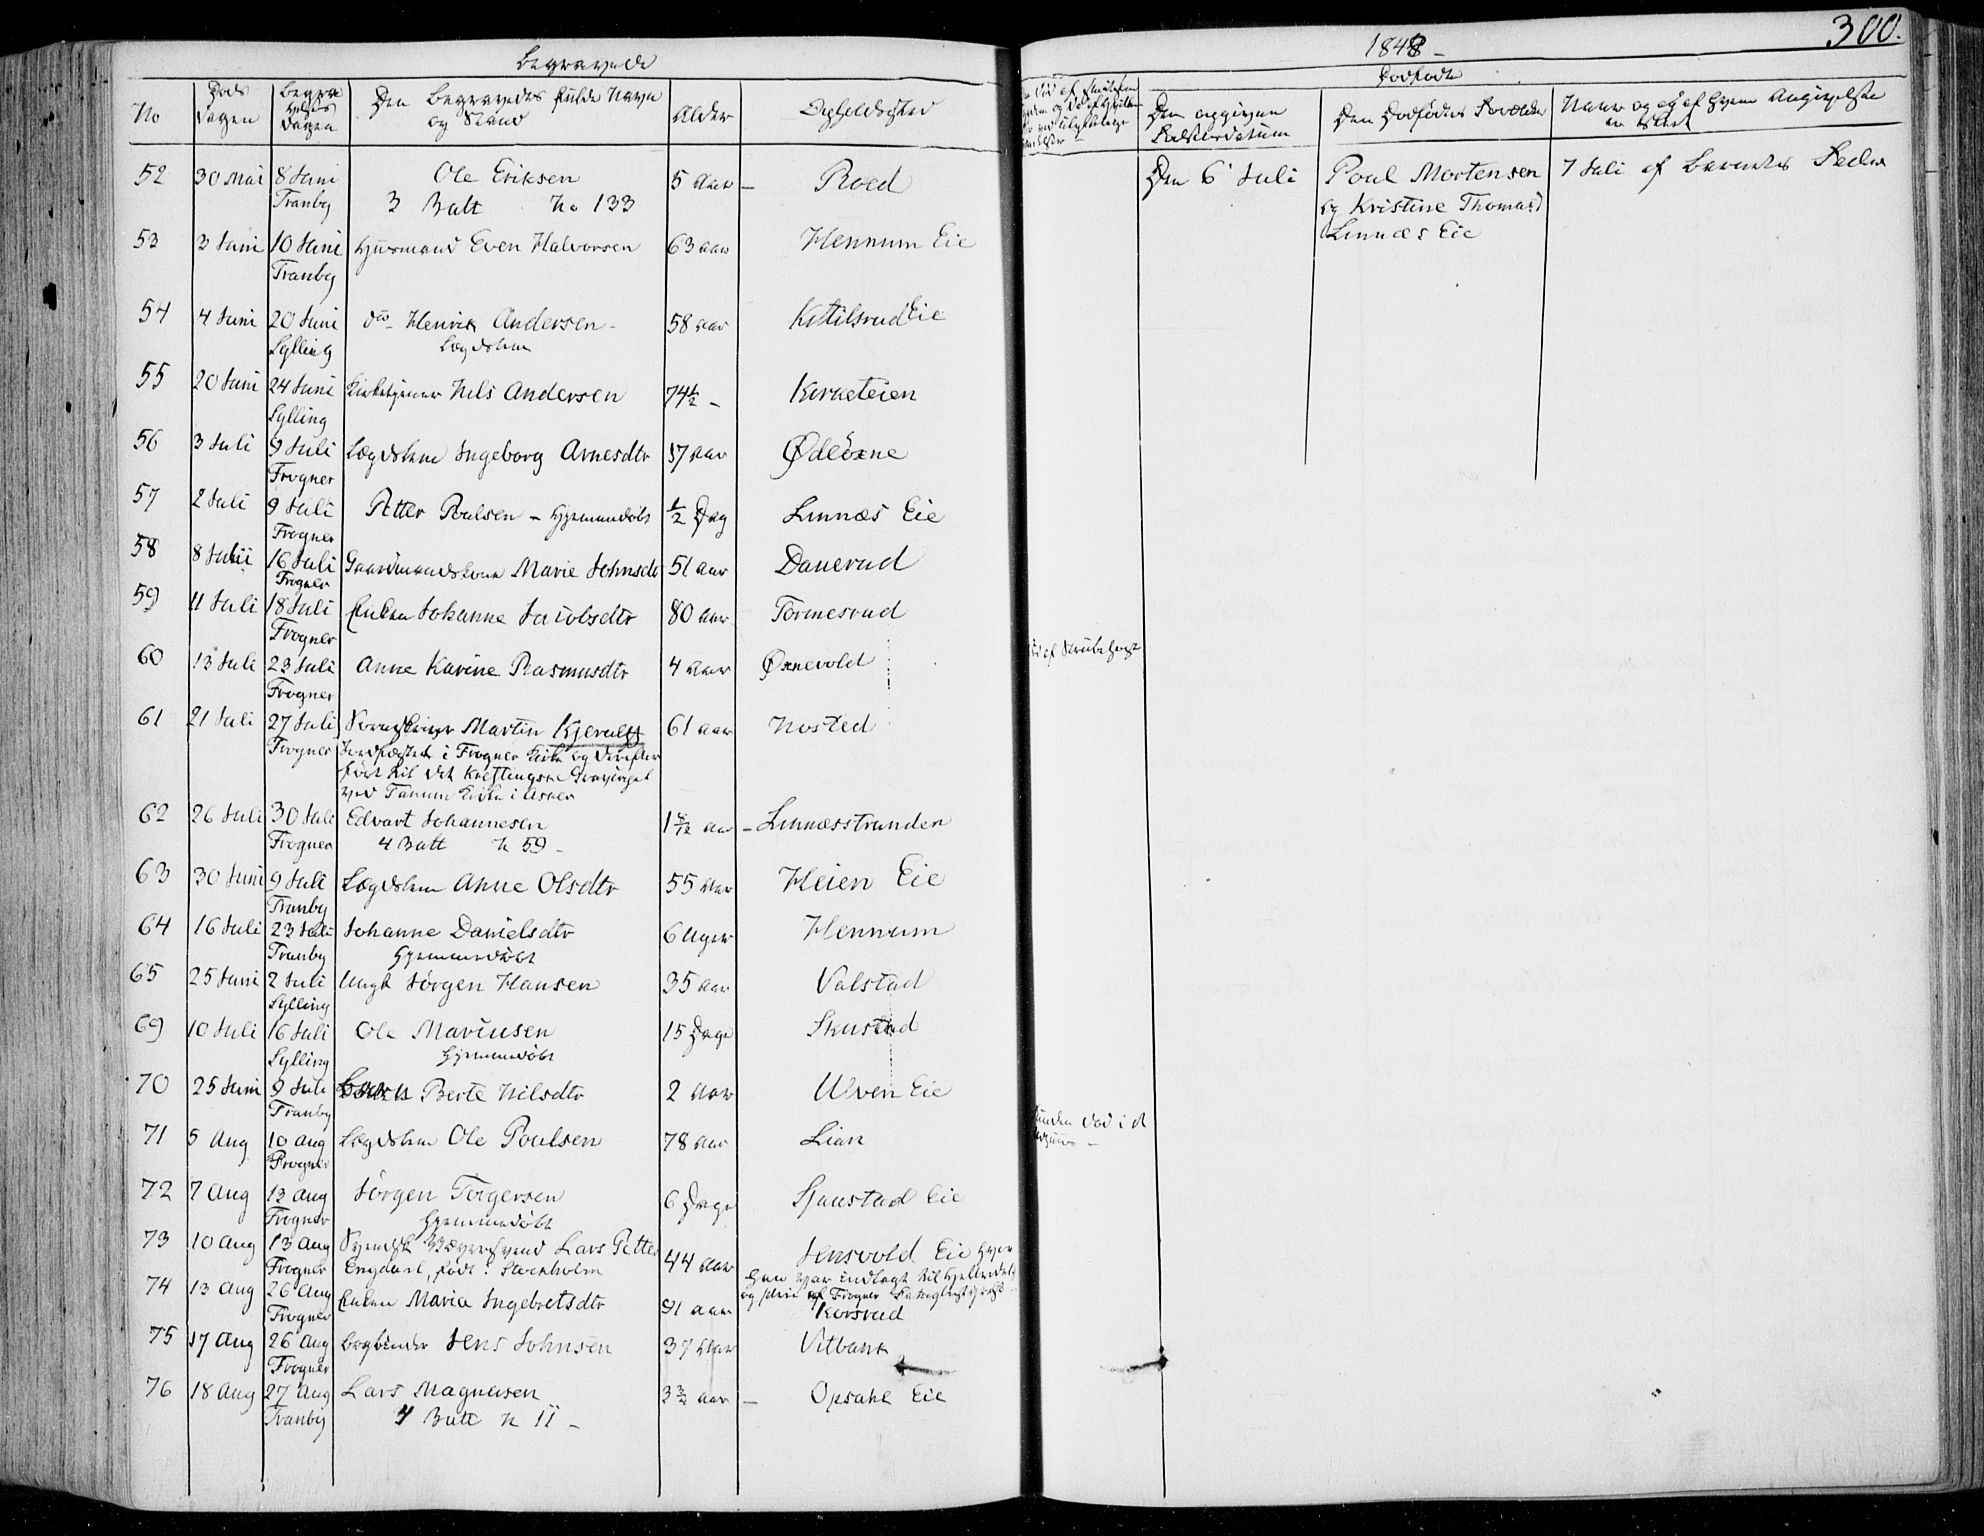 Begravede
No
Døds Dagen
Begravelses Dagen
Den Begravedes fulde Navn og Stand
Alder
Opholdssted
52 30 Mai 8 Juni Ole Eriksen 5 Aar – Roed
Tranby 3 Batt No 133
53 3 Juni 10 Juni Huusmand Even Halvorsen 63 Aar Hennum Eie
Tranby
54 4 Juni 20 Juni do Henrik Andersen – 58 Aar Kittilsrud Eie
Sylling Lægdslem
55 20 Juni 24 Juni Kirketjener Nils Andersen 74½ – Kirketeien
Sylling
56 3 Juli 9 Juli Lægdslem Ingeborg Arnesdtr 57 Aar
Frogner
57 2 Juli 9 Juli Petter Poulsen – Hjemmedøbt ½ Dag Linnæs Eie
Frogner
58 8 Juli 16 Juli Gaardmandskone Marie Johnsdtr 51 Aar Danerud
Frogner
59 11 Juli 18 Juli Enken Johanne Jacobsdtr 80 Aar Tormesrud
Frogner
60 13 Juli 23 Juli Anne Karine Rasmusdtr 4 Aar Øxnevold
Frogner
61 21 Juli 27 Juli Sorenskriver Martin Kjerulff 61 Aar Nosted
Frogner Jordfæstet i Frogner Kirke og derefter
ført til det Gravsted
ved Tanum Kirke i Asker
62 26 Juli 30 Juli Edvart Johannesen 1 8/12 Aar – Linnæsstranden
Frogner 4 Batt N 59 –
63 30 Juni 9 Juli Lægdslem Anne Olsdtr 55 Aar Heien Eie
Tranby
64 16 Juli 23 Juli Johanne Danielsdtr 6 Uger Hennum
Tranby Hjemmedøbt
65 25 Juni 2 Juli Ungk Jørgen Hansen 35 Aar Valstad
Sylling
69 10 Juli 16 Juli Ole Mariusen 15 Dage Skustad
Sylling Hjemmedøbt
70 25 Juni 9 Juli Berte Nilsdtr 2 Aar Uven Eie
Tranby
71 5 Aug 10 Aug Lægdslem Ole Poulsen 78 Aar Lian
Frogner
72 7 Aug 13 Aug Jørgen Torgersen 6 Dage Sjaustad Eie
Frogner Hjemmedøbt
73 10 Aug 13 Aug Svensk Lars Petter 44 Aar Jensvold Eie hvor
Frogner født i Stockholm han var indlagt til
og pleie af Frogner
74 13 Aug 26 Aug Enken Maria Ingebretsdtr 91 Aar Korsrud
Frogner
75 17 Aug 26 Aug Bogbinder Jens Johnsen 37 Aar Vitbank
Frogner
76 18 Aug 27 Aug Lars Magnusen 3 Aar – Opsahl Eie
Tranby 4 Batt N 11 –
1848 –
300.
Dødfødte
Den opgivne Fødselsdatum
Den Dødfødtes Forældre
Naar og af hvem Angivelsen er skeet
Den 6 Juli Poul Mortensen 7 Juli af Barnets Fader
og Kristine Thomasd
Linnæs Eie
af Strubehoste
funden død i